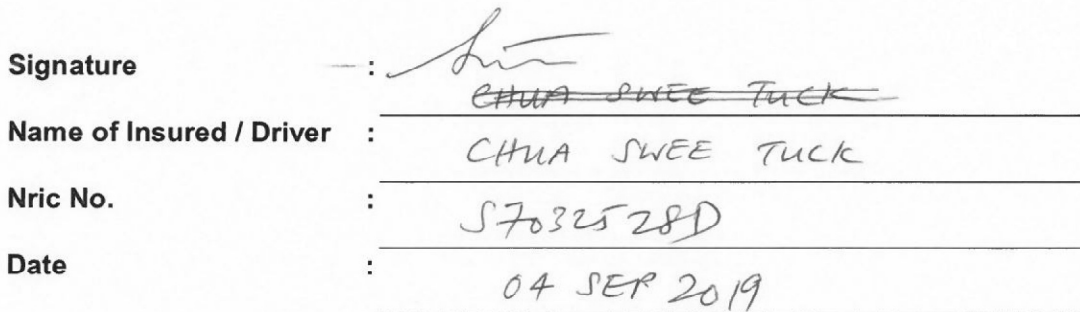 Signature :
CHUA SWEE TUCK
Name of Insured / Driver : CHUA SWEE TUCK
Nric No. : S7032528D
Date : 04 SEP 2019